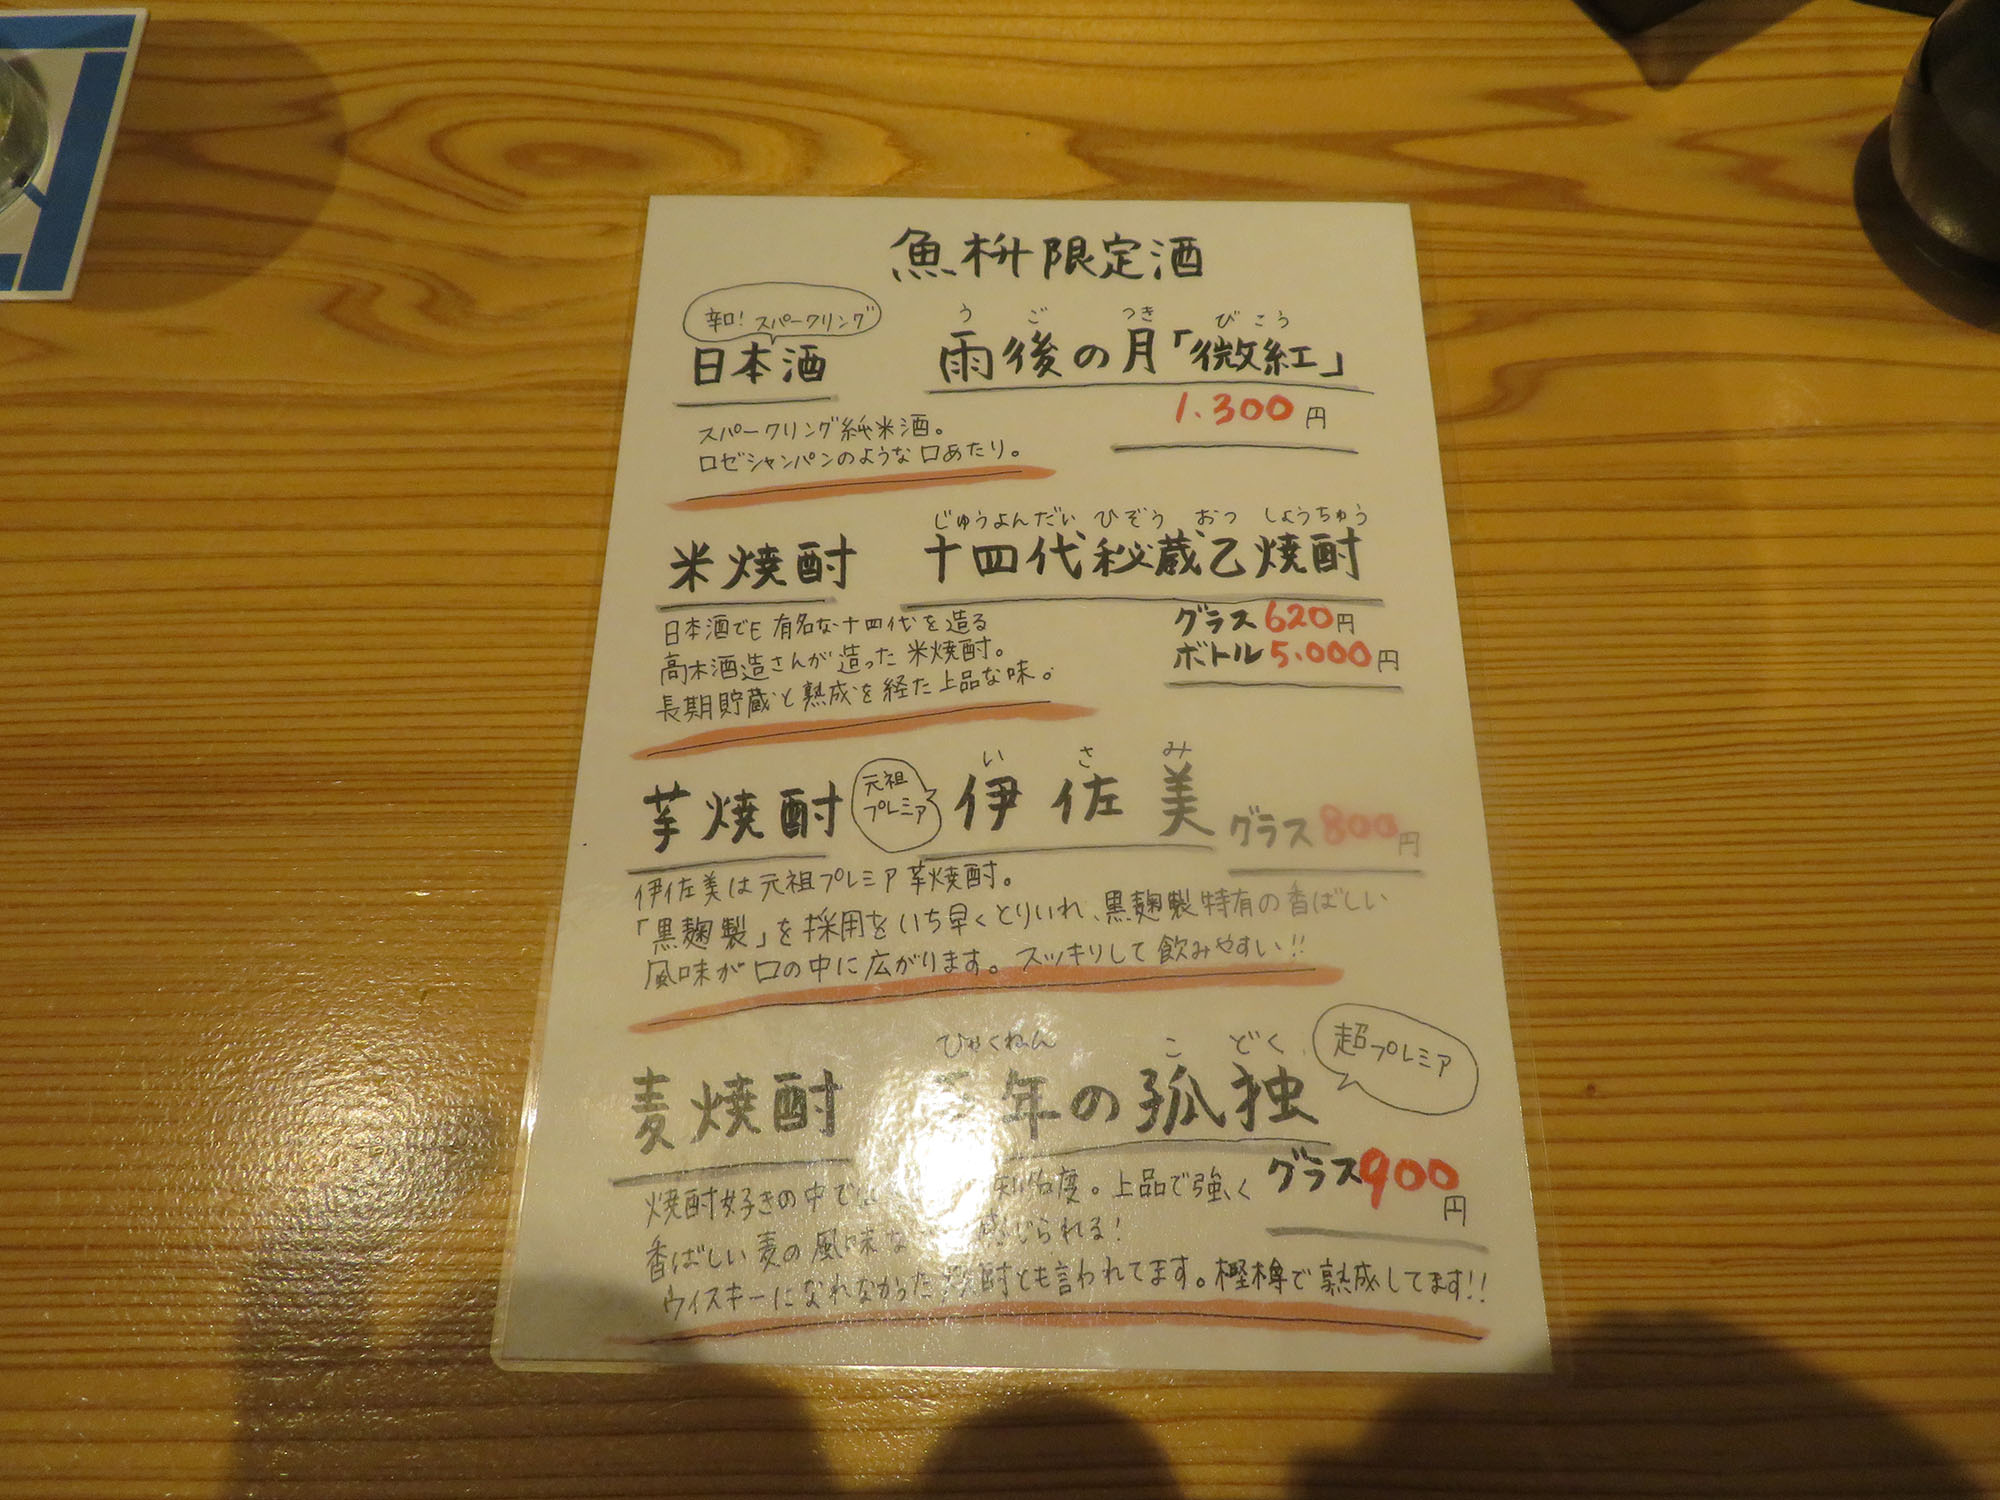 魚枡限定酒
辛口!スパークリング
日本酒
うご つき びこう
雨後の月「微紅」
1.300円
スパークリング純米酒。
ロゼシャンパンのような口あたり。
じゅうよんだい ひぞう おつ しょうちゅう
米焼酎 十四代秘蔵乙焼酎
日本酒でも有名な十四代を造る
高木酒造さんが造った米焼酎。
長期貯蔵と熟成を経た上品な味。
グラス620円
ボトル5.000円
いさみ
芋焼酎
元祖
プレミア
伊佐美
グラス800円
伊佐美は元祖プレミア芋焼酎。
「黒麹製」を採用をいち早くとりいれ、黒麹製特有の香ばしい
風味が口の中に広がります。スッキリして飲みやすい!!
ひゃくねん こどく
麦焼酎 年の孤独
超プレミア
グラス900円
焼酎好きの中で 知名度。上品で強く
香ばしい麦の風味 感じられる!
ウイスキーになれなかった 酎とも言われてます。樫樽で熟成してます!!